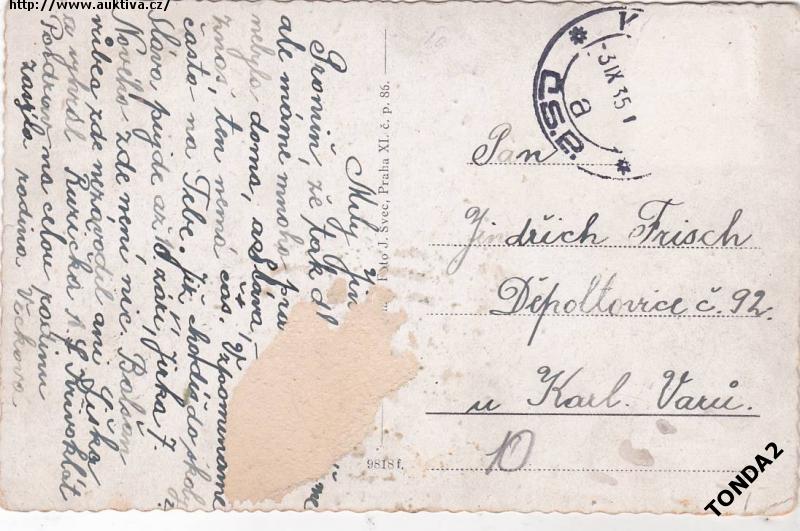 http://www.auktiva.cz/
Milý
Promiň, že tak dl
ale máme mnoho prá
nebyla doma, a Sláva,
znáš, ten nemá čas. Vzpomínáme
často na Tebe. Již chodíš do školy
Sláva půjde až 10 září, Jirka 7.
Nového zde není nic. Balvan
zde nezávodil ani Liška
a vyhrál Ruzicka A. Křivoklát
Pozdrav na celou rodinu
rodina Večkova
Foto J. Švec, Praha XI. č. p. 86.
9818 f.
-3.IX.35
a
ČSR
Pan
Jindřich Frisch
Děpoltovice č. 92.
u Karl. Varů.
10
TONDA2